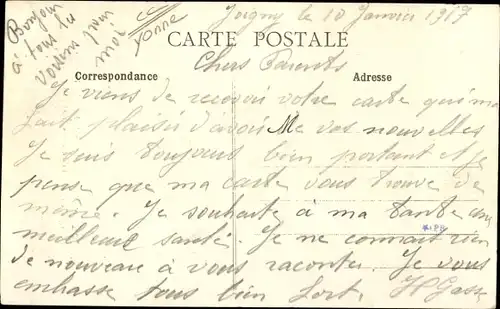 Bonjour
à tous les
voisins pour
moi
Yonne
Joigny le 10 Janvier 1917
CARTE POSTALE
Chers Parents
Correspondance
Adresse
Je viens de recevoir votre carte qui ma
fait plaisir d'avoir de vos nouvelles
Je suis toujours bien portant et je
pense que ma carte vous trouve de
même. Je souhaite à ma tante une
meilleure santé. Je ne connait rien
de nouveau à vous raconter. Je vous
embrasse tous bien fort. H